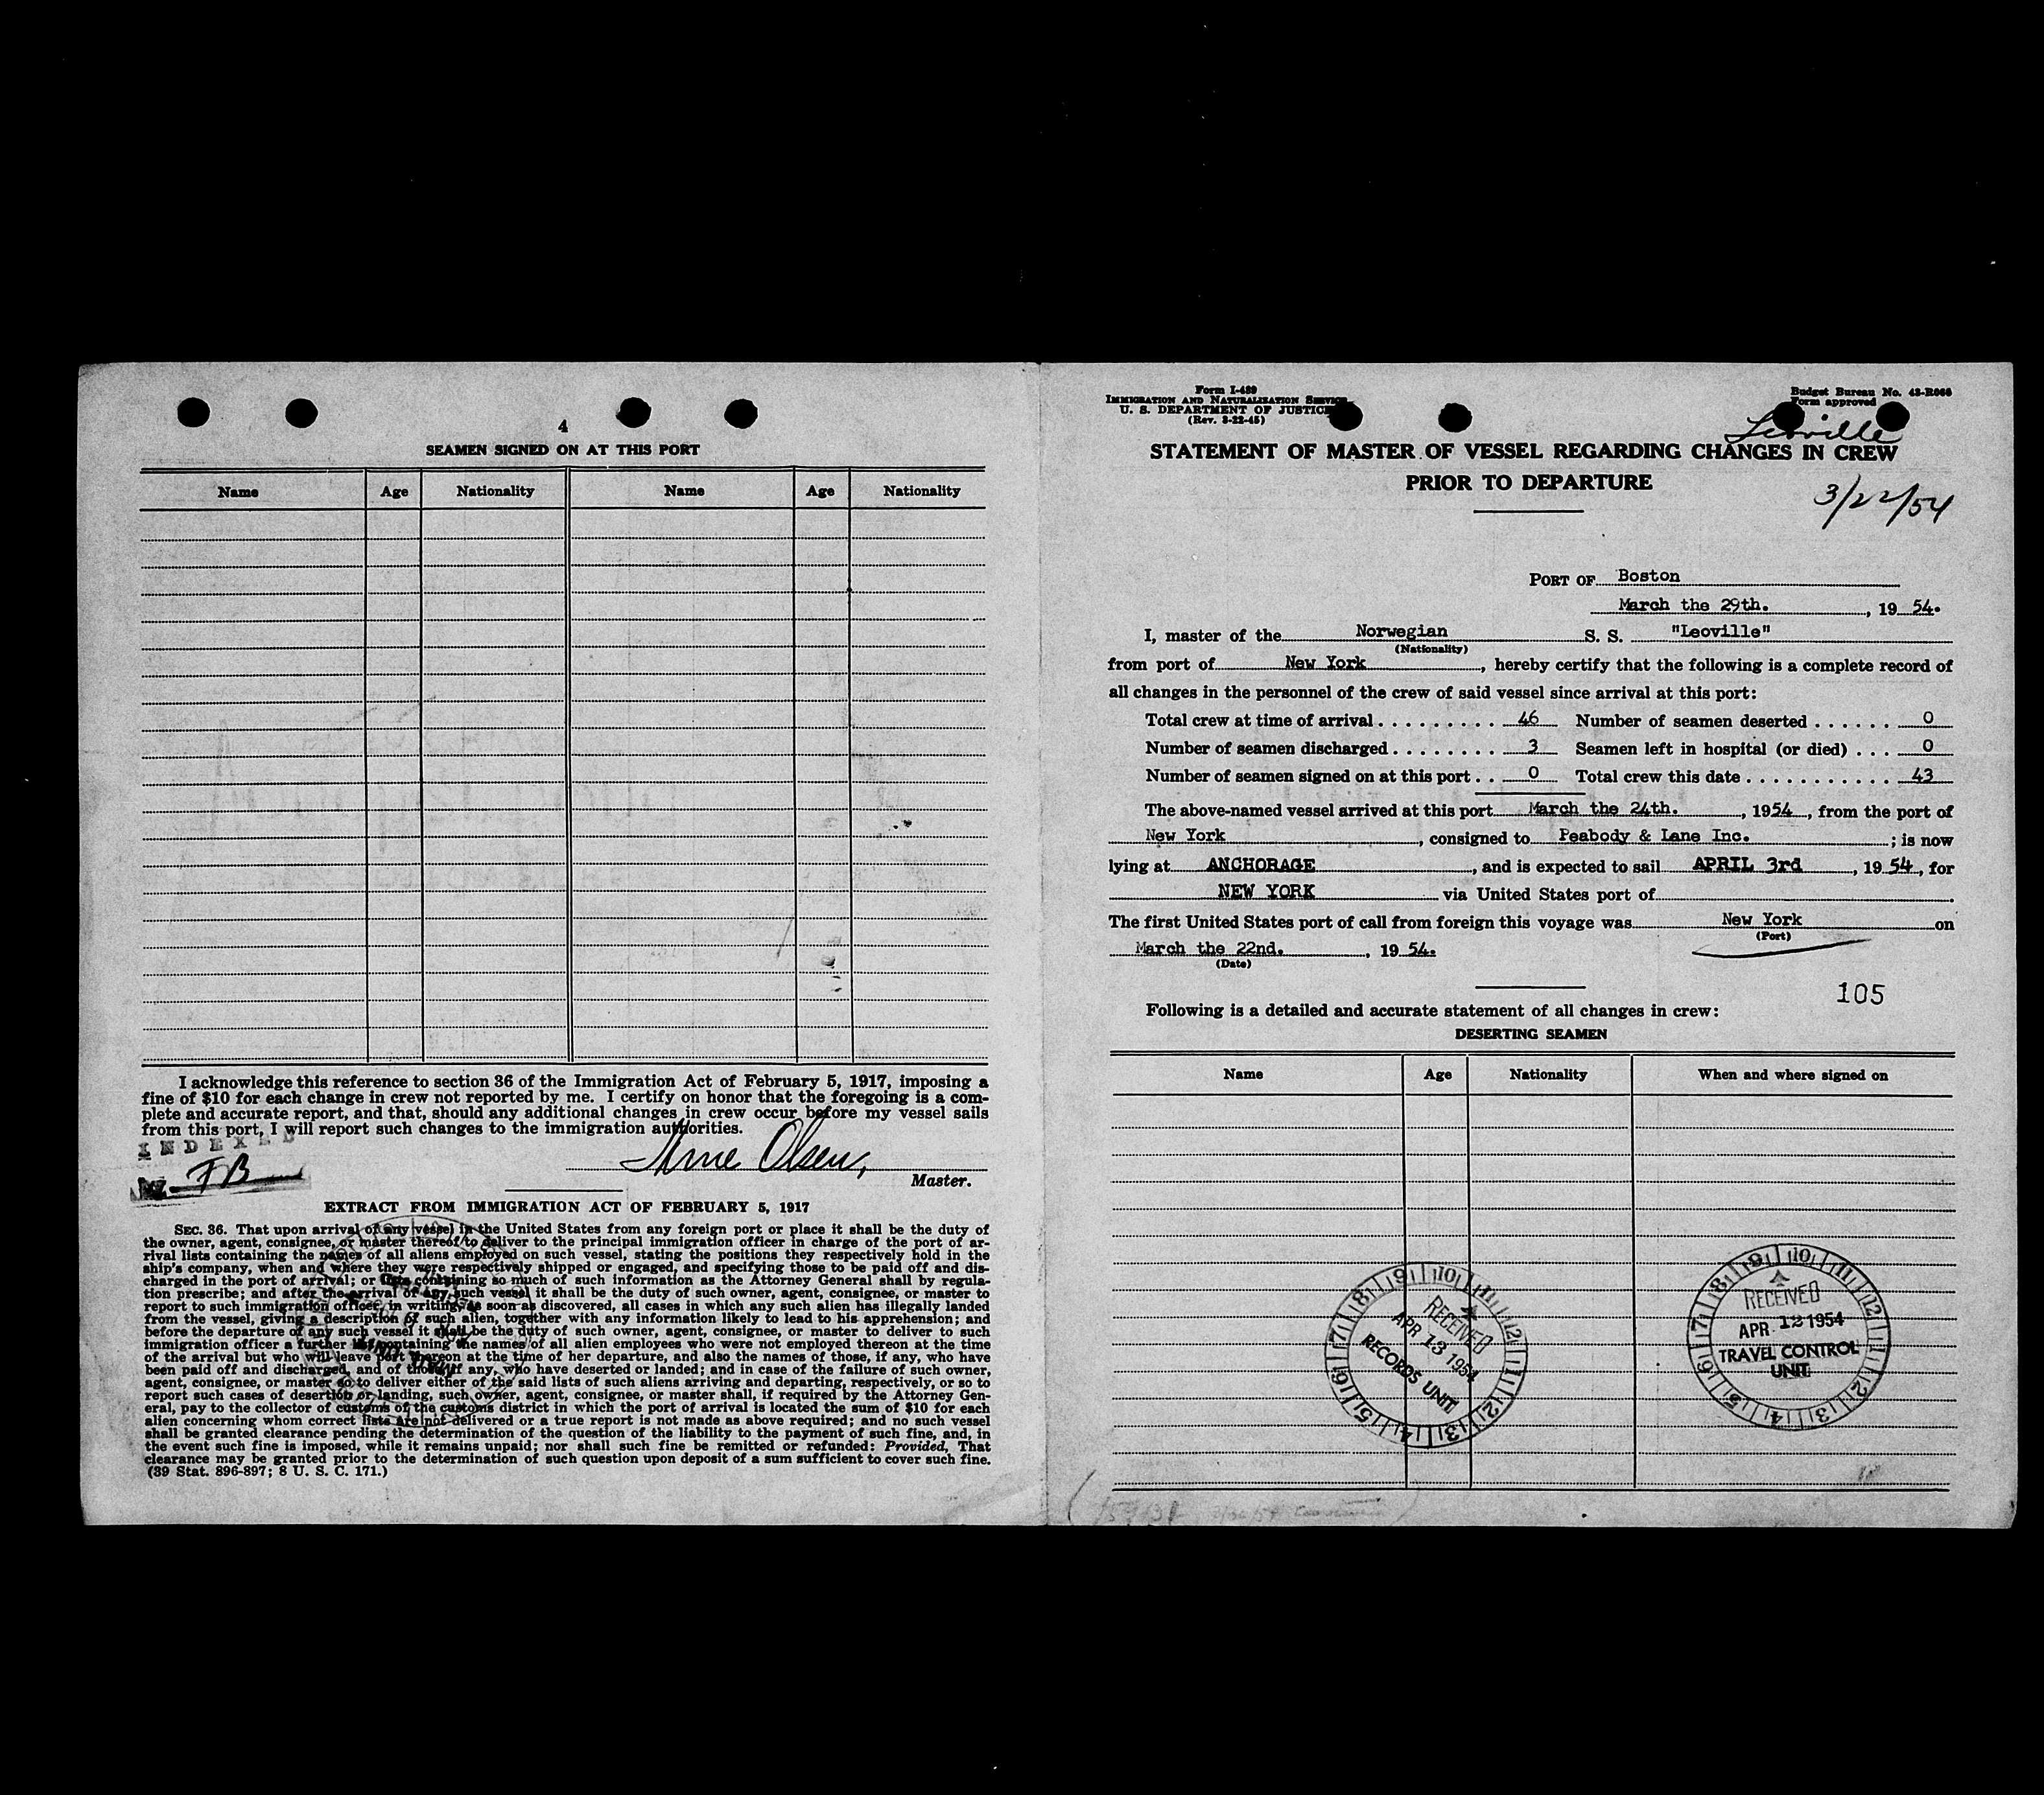 4
SEAMEN SIGNED ON AT THIS PORT
Name Age Nationality Name Age Nationality
I acknowledge this reference to section 36 of the Immigration Act of February 5, 1917, imposing a
fine of $10 for each change in crew not reported by me. I certify on honor that the foregoing is a com-
plete and accurate report, and that, should any additional changes in crew occur before my vessel sails
from this port, I will report such changes to the immigration authorities.
INDEXED
FB
Arne Olsen,
Master.
EXTRACT FROM IMMIGRATION ACT OF FEBRUARY 5, 1917
SEC. 36. That upon arrival of any vessel in the United States from any foreign port or place it shall be the duty of
the owner, agent, consignee, or master thereof to deliver to the principal immigration officer in charge of the port of ar-
rival lists containing the names of all aliens employed on such vessel, stating the positions they respectively hold in the
ship's company, when and where they were respectively shipped or engaged, and specifying those to be paid off and dis-
charged in the port of arrival; or lists containing so much of such information as the Attorney General shall by regula-
tion prescribe; and after the arrival of any such vessel it shall be the duty of such owner, agent, consignee, or master to
report to such immigration officer, in writing, as soon as discovered, all cases in which any such alien has illegally landed
from the vessel, giving a description of such alien, together with any information likely to lead to his apprehension; and
before the departure of any such vessel it shall be the duty of such owner, agent, consignee, or master to deliver to such
immigration officer a further list containing the names of all alien employees who were not employed thereon at the time
of the arrival but who will leave port thereon at the time of her departure, and also the names of those, if any, who have
been paid off and discharged, and of those, if any, who have deserted or landed; and in case of the failure of such owner,
agent, consignee, or master so to deliver either of the said lists of such aliens arriving and departing, respectively, or so to
report such cases of desertion or landing, such owner, agent, consignee, or master shall, if required by the Attorney Gen-
eral, pay to the collector of customs of the customs district in which the port of arrival is located the sum of $10 for each
alien concerning whom correct lists are not delivered or a true report is not made as above required; and no such vessel
shall be granted clearance pending the determination of the question of the liability to the payment of such fine, and, in
the event such fine is imposed, while it remains unpaid; nor shall such fine be remitted or refunded: Provided, That
clearance may be granted prior to the determination of such question upon deposit of a sum sufficient to cover such fine.
(39 Stat. 896-897; 8 U. S. C. 171.)
Form I-489
IMMIGRATION AND NATURALIZATION SERVICE
U. S. DEPARTMENT OF JUSTICE
(Rev. 3-22-45)
Budget Bureau No. 43-R066
Form approved
Leoville
STATEMENT OF MASTER OF VESSEL REGARDING CHANGES IN CREW
PRIOR TO DEPARTURE
3/22/54
PORT OF Boston
March the 29th., 19 54.
I, master of the Norwegian S. S. "Leoville"
(Nationality)
from port of New York, hereby certify that the following is a complete record of
all changes in the personnel of the crew of said vessel since arrival at this port:
Total crew at time of arrival . . . . . . . . . 46 Number of seamen deserted . . . . . . 0
Number of seamen discharged . . . . . . . . 3 Seamen left in hospital (or died) . . . 0
Number of seamen signed on at this port . . 0 Total crew this date . . . . . . . . . . . 43
The above-named vessel arrived at this port March the 24th., 1954, from the port of
New York, consigned to Peabody & Lane Inc.; is now
lying at ANCHORAGE, and is expected to sail APRIL 3rd, 19 54, for
NEW YORK via United States port of
The first United States port of call from foreign this voyage was New York on
(Port)
March the 22nd., 19 54.
(Date)
105
Following is a detailed and accurate statement of all changes in crew:
DESERTING SEAMEN
Name Age Nationality When and where signed on
RECEIVED
APR 13 1954
RECORDS UNIT
RECEIVED
APR 12 1954
TRAVEL CONTROL
UNIT